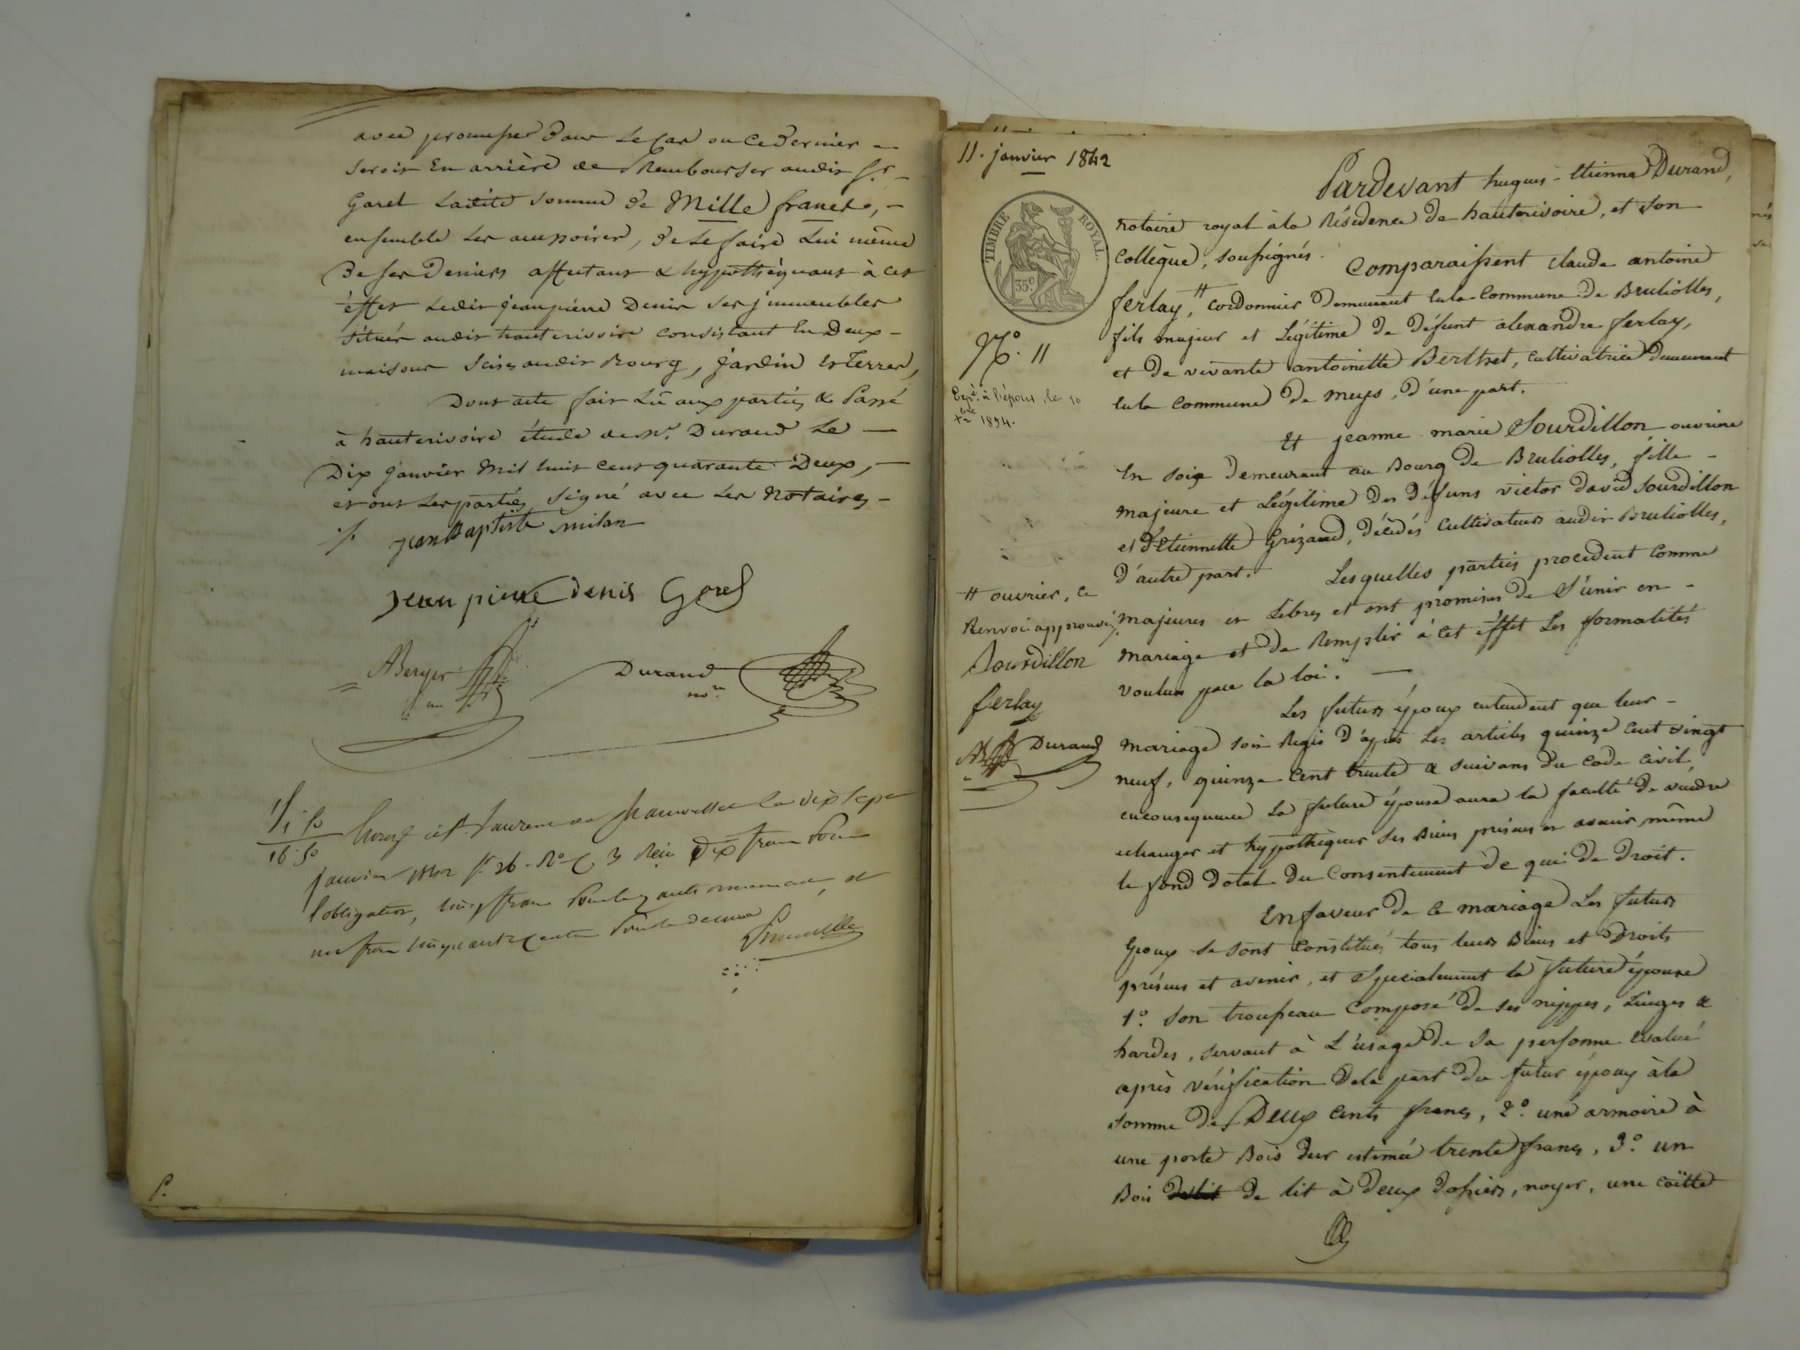 avec promesse dans le cas ou ce dernier
seroit En arrière de Rembourser audit Sr.
Garel Ladite somme de Mille francs, -
ensemble les accessoires, de le faire Lui même
De ses Deniers affectant & hypothéquant à cet
éffet Ledit Jean pierre Denis ses jmmeubles
situés audit hauterivoire consistant En Deux -
maisons sises audit Bourg, jardin et Terres,
Dont acte fait Lû aux parties & Passé
à hauterivoire étude de Me. Durand Le —
Dix janvier Mil huit cent quarante Deux, —
et ont Les parties signé avec Les Notaires -
jean Baptiste milan
jean pierre denis Garel
ABerger
Durand
nore
1/1 50
16 50
Enregé à St. Laurent de Chamousset le dix sept
janvier 1842 fo 26 Ro C 3 Reçu Dix francs Pour
l'obligation, cinq francs Pour le cautionnement, et
un franc cinquante centes Pour le decime
P.
11. janvier 1842
TIMBRE ROYAL.
35c
No. 11
Expé. à l'épouse le 10
Xbre 1894.
# ouvrier, ce
Renvoi approuvé,
Sourdillon
ferlay
AB Durand
Pardevant hugues-Etienne Durand,
notaire royal à la Résidence de hauterivoire, et son
Collègue, soussignés.
Comparaissent claude antoine
ferlay, # cordonnier demeurant En la Commune de Brulliolles,
fils majeur et Légitime de défunt alexandre ferlay,
et de vivante antoinette Berthet, cultivatrice demeurant
En la Commune de meys, d'une part.
Et jeanne marie Sourdillon ouvriere
En soie demeurant au Bourg de Brulliolles, fille -
majeure et Légitime des défuns victor david Sourdillon
et d'Etiennette Grézaud, décédés cultivateurs audit Brulliolles,
d'autre part.
Lesquelles parties procèdent Comme
majeures et Libres et ont promis de s'unir en -
mariage et de Remplir à cet éffet Les formalités
voulues par la loi. —
Les futurs époux entendent que leur -
mariage soit Régis d'après Les articles quinze cent vingt
neuf, quinze cent trente & suivans du Code Civil,
en conséquence La future épouse aura la faculté de vendre
echanger et hypothéquer ses Biens présens et avenir même
le fond dotal du Consentement de qui de droit.
En faveur de ce mariage Les futurs
Epoux se sont constitués tous leurs Biens et Droits
présens et avenir, et Spécialement la future épouse
1o. Son trousseau composé de ses nippes, Linges &
hardes, servant à L'usage de sa personne Evalué
après vérification De la part du futur époux à la
somme de Deux cents francs, 2o. une armoire à
une porte Bois dur estimée trente francs, 3o. un
Bois de lit à deux dossiers, noyer, une coëtte